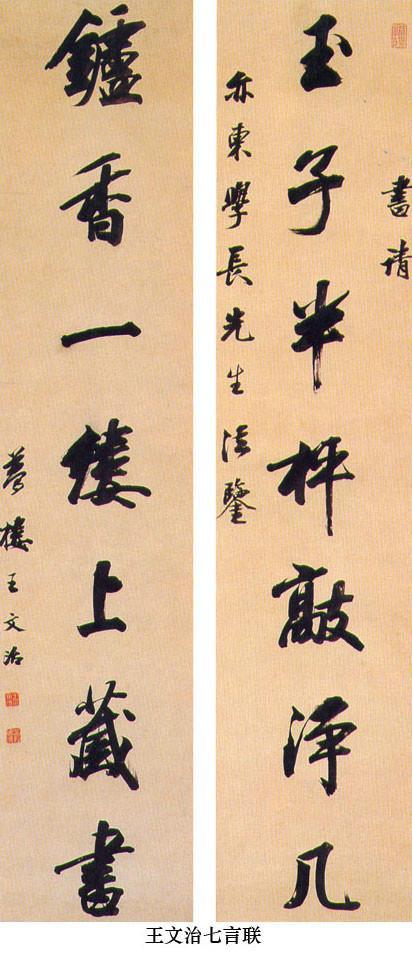 書請
玉子半枰敲淨几
亦東學長先生法鑒
鑪香一縷上藏書
夢樓王文治
王文治七言联